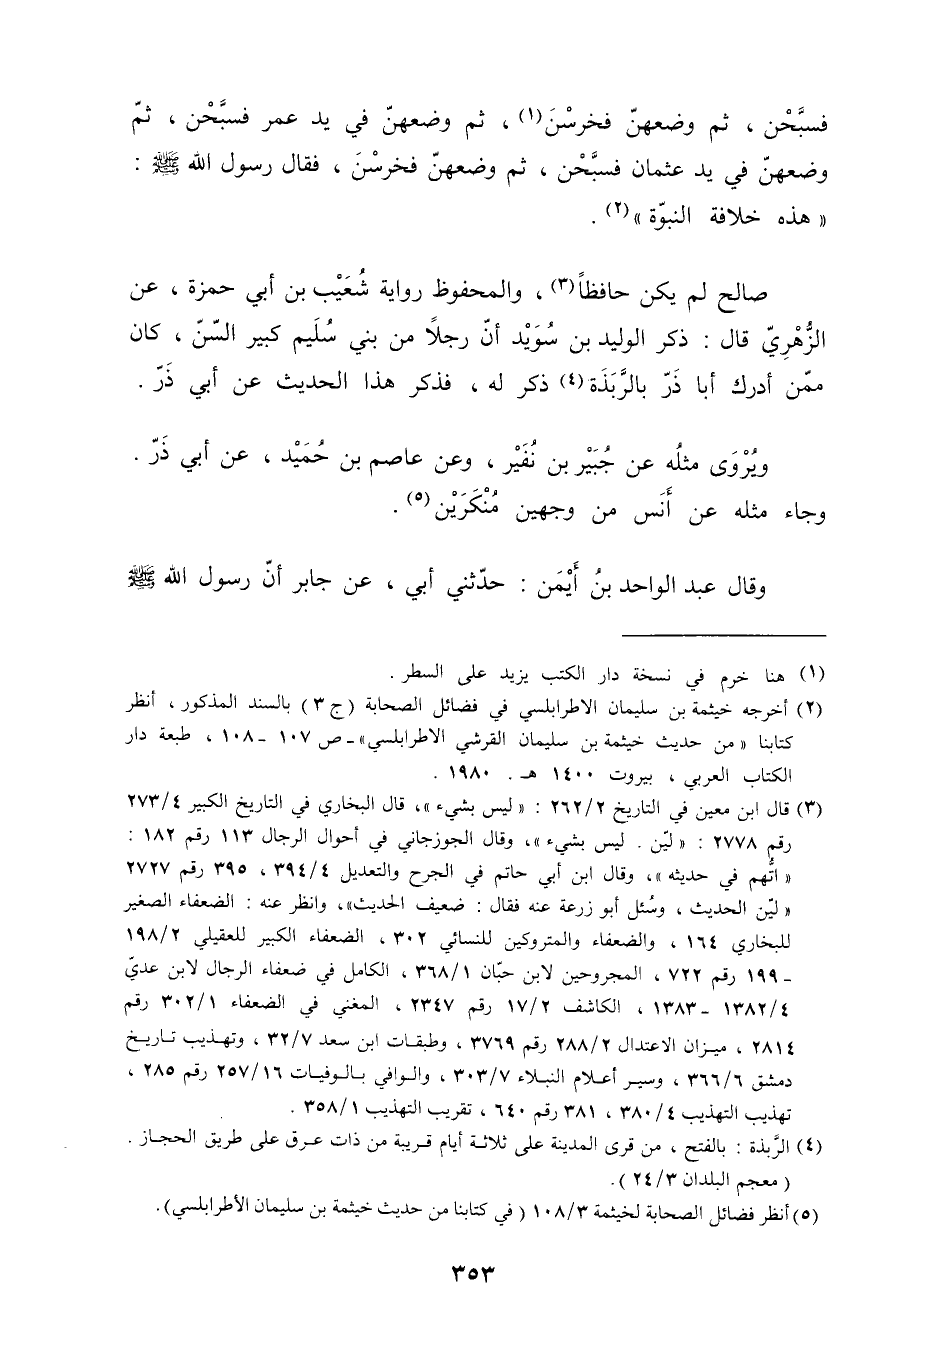 فسبَّحْن ، ثم وضعهنّ فخرسْنَ(١) ، ثم وضعهنّ في يد عمر فسبَّحْن ، ثمّ
وضعهنّ في يد عثمان فسبَّحْن ، ثم وضعهنّ فخرسْنَ ، فقال رسول الله ﷺ :
« هذه خلافة النبوّة »(٢) .
صالح لم يكن حافظاً(٣) ، والمحفوظ رواية شُعَيْب بن أبي حمزة ، عن
الزُّهْرِيّ قال : ذكر الوليد بن سُوَيْد أنّ رجلاً من بني سُلَيم كبير السّنّ ، كان
ممّن أدرك أبا ذَرّ بالرَّبَذَة(٤) ذكر له ، فذكر هذا الحديث عن أبي ذَرّ .
ويُرْوَى مثلُه عن جُبَيْر بن نُفَيْر ، وعن عاصم بن حُمَيْد ، عن أبي ذَرّ .
وجاء مثله عن أَنَس من وجهين مُنْكَرَيْن(٥) .
وقال عبد الواحد بنُ أَيْمَن : حدّثني أبي ، عن جابر أنّ رسول الله ﷺ
(١) هنا خرم في نسخة دار الكتب يزيد على السطر .
(٢) أخرجه خيثمة بن سليمان الاطرابلسي في فضائل الصحابة (ج ٣) بالسند المذكور ، أنظر
كتابنا « من حديث خيثمة بن سليمان القرشي الاطرابلسي» ـ ص ١٠٧ ـ ١٠٨ ، طبعة دار
الكتاب العربي ، بيروت ١٤٠٠ هـ . ١٩٨٠ .
(٣) قال ابن معين في التاريخ ٢/‏٢٦٢ : « ليس بشيء »، قال البخاري في التاريخ الكبير ٤/‏٢٧٣
رقم ٢٧٧٨ : « ليّن . ليس بشيء »، وقال الجوزجاني في أحوال الرجال ١١٣ رقم ١٨٢ :
« اتُّهم في حديثه »، وقال ابن أبي حاتم في الجرح والتعديل ٤/‏٣٩٤ ، ٣٩٥ رقم ٢٧٢٧
« ليّن الحديث ، وسُئل أبو زرعة عنه فقال : ضعيف الحديث»، وانظر عنه : الضعفاء الصغير
للبخاري ١٦٤ ، والضعفاء والمتروكين للنسائي ٣٠٢ ، الضعفاء الكبير للعقيلي ٢/‏١٩٨
ـ ١٩٩ رقم ٧٢٢ ، المجروحين لابن حبّان ١/‏٣٦٨ ، الكامل في ضعفاء الرجال لابن عديّ
٤/‏١٣٨٢ ـ ١٣٨٣ ، الكاشف ٢/‏١٧ رقم ٢٣٤٧ ، المغني في الضعفاء ١/‏٣٠٢ رقم
٢٨١٤ ، ميزان الاعتدال ٢/‏٢٨٨ رقم ٣٧٦٩ ، وطبقات ابن سعد ٧/‏٣٢ ، وتهذيب تاريخ
دمشق ٦/‏٣٦٦ ، وسير أعلام النبلاء ٧/‏٣٠٣ ، والوافي بالوفيات ١٦/‏٢٥٧ رقم ٢٨٥ ،
تهذيب التهذيب ٤/‏٣٨٠ ، ٣٨١ رقم ٦٤٠ ، تقريب التهذيب ١/‏٣٥٨ .
(٤) الرَّبذة : بالفتح ، من قرى المدينة على ثلاثة أيام قريبة من ذات عرق على طريق الحجاز .
( معجم البلدان ٣/‏٢٤ ).
(٥) أنظر فضائل الصحابة لخيثمة ٣/‏١٠٨ ( في كتابنا من حديث خيثمة بن سليمان الأطرابلسي).
٣٥٣